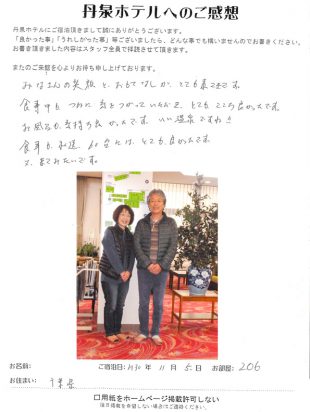 丹泉ホテルへのご感想
丹泉ホテルにご宿泊頂きまして誠にありがとうございます。
「良かった事」「うれしかった事」等ございましたら、どんな事でも構いませんのでお書きください。
お書き頂きました内容はスタッフ全員で拝読させて頂きます。
またのご来館を心よりお待ち申し上げております。
みなさんの笑顔と、おもてなしが、とても
食事中も つねに 気をつかっていただき、とても ここち良かったです。
お風呂も 気持ち良かったです。いい温泉ですね!!
食事も とても 良かったです
又、来てみたいです。
お名前:
ご宿泊日: 2020 年 11 月 5 日
お部屋: 206
お住まい: 千葉県
口用紙をホームページ掲載許可しない